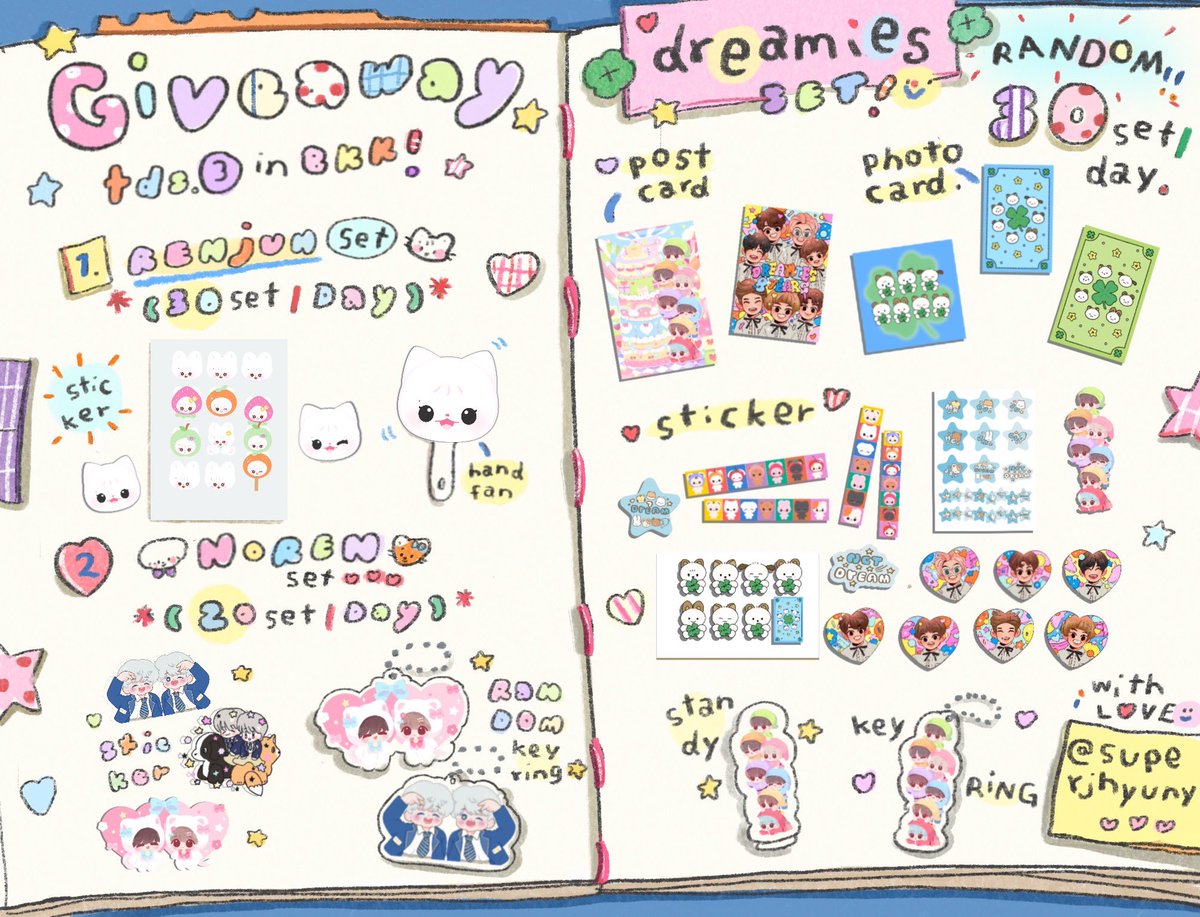 Giveaway
tds.3 in BKK!
1. RENJUN set
*(30 set/Day)*
stic
ker
hand
fan
2 NOREN
set
*(20 set/Day)*
stic
ker
RAN
DOM
key
ring
dreamies
SET!
RANDOM
30 set/
day.
post
card
photo
card.
DREAMIES
8 YEARS
sticker
DREAM
NCT
DREAM
stan
dy
key
RiNG
with
LOVE
@supe
rjhyuny